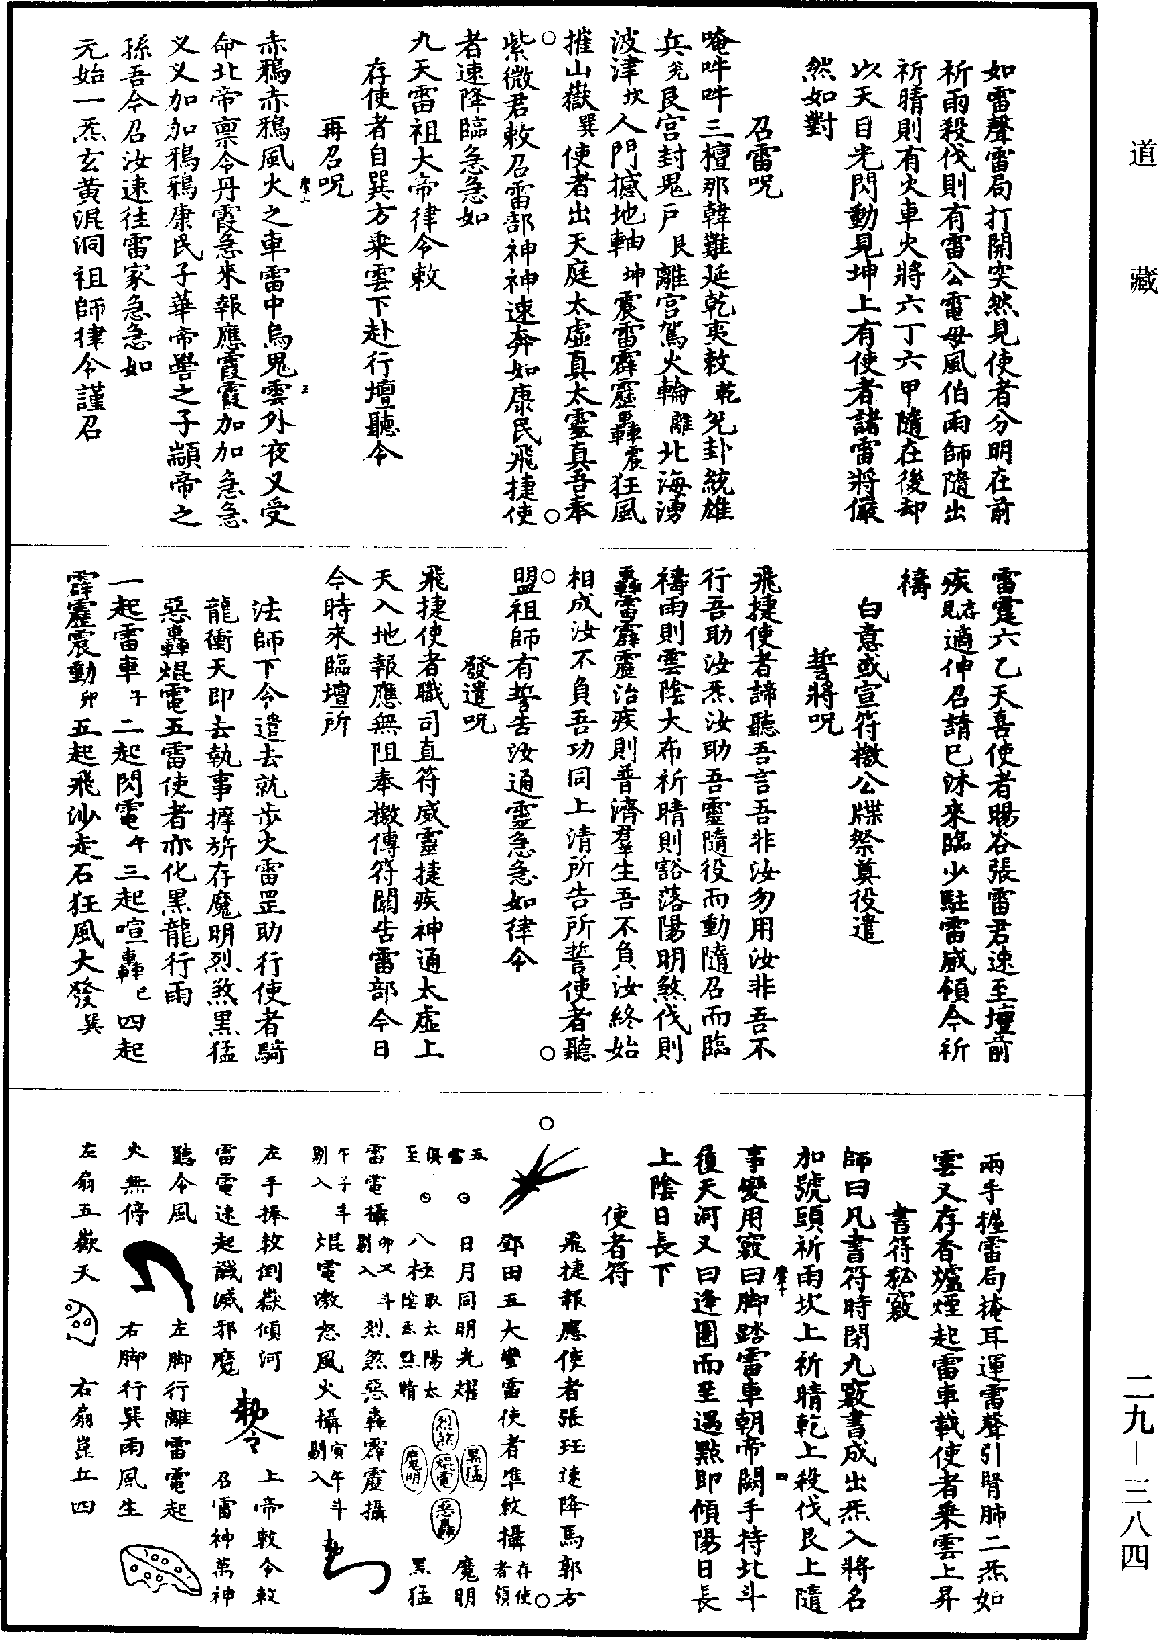 道藏
如雷聲雷局打開突然見使者分明在前
祈雨殺伐則有雷公電母風伯雨師隨出
祈晴則有火車火將六丁六甲隨在後却
以天目光閃動見坤上有使者諸雷將儼
然如對
召雷呪
唵吽吽三檀那韓難延乾夷敕乾兊卦統雄
兵兊艮宮封鬼戶艮離宮駕火輪離北海湧
波津坎人門撼地軸坤震雷霹靂轟震狂風
摧山嶽巽使者出天庭太虛真太靈真吾奉
紫微君敕召雷部神神速奔如康民飛捷使
者速降臨急急如
九天雷祖大帝律令敕
存使者自巽方乘雲下赴行壇聽令
再召呪
赤鴉赤鴉風火之車雷中烏鬼雲外夜叉受
命北帝禀令丹霞急來報應霞霞加加急急
叉叉加加鴉鴉康民子華帝嚳之子顓帝之
孫吾今召汝速往雷家急急如
元始一炁玄黃混洞祖師律令謹召
雷霆六乙天喜使者暘谷張雷君速至壇前
疾存見適伸召請已沐來臨少駐雷威領今祈
禱
白意或宣符檄公牒祭奠役遣
誓將呪
飛捷使者諦聽吾言吾非汝勿用汝非吾不
行吾助汝炁汝助吾靈隨役而動隨召而臨
禱雨則雲陰大布祈晴則豁落陽明煞伐則
轟雷霹靂治疾則普濟羣生吾不負汝終始
相成汝不負吾功同上清所告所誓使者聽
盟祖師有誓告汝通靈急急如律令
發遣呪
飛捷使者職司直符威靈捷疾神通太虛上
天入地報應無阻奉檄傳符關告雷部今日
今時來臨壇所
法師下令遣去就步火雷罡助行使者騎
龍衝天即去執事擇旂存魔明烈煞黑猛
惡轟焜電五雷使者亦化黑龍行雨
一起雷車子二起閃電午三起喧轟巳四起
霹靂震動卯五起飛沙走石狂風大發巽
兩手握雷局掩耳運雷聲引腎肺二炁如
雲又存香爐煙起雷車載使者乘雲上昇
書符秘竅
師曰凡書符時閉九竅書成出炁入將名
加號頭祈雨坎上祈晴乾上殺伐艮上隨
事變用竅曰脚踏雷車朝帝闕手持北斗
復天河又曰逢圈而至遇點即傾陽日長
上陰日長下
使者符
飛捷報應使者張珏速降馬郭方
鄧田五大蠻雷使者准敕攝存使者領
五雷俱至
日月同明光耀
魔明
八極取太陽太陰炁點睛
烈煞
黑猛
焜電
魔明
惡轟
黑猛
雷電攝卯又斗剔入烈煞惡轟霹靂攝
午子斗剔入焜電激怒風火攝寅午斗剔入
左手捧敕倒嶽傾河
敕令
上帝敕令敕
雷電速起誡滅邪魔
召雷神萬神
聽令風
左脚行離雷電起
火無停
右脚行巽雨風生
左扇五嶽天
右扇崑丘四
二九—三八四